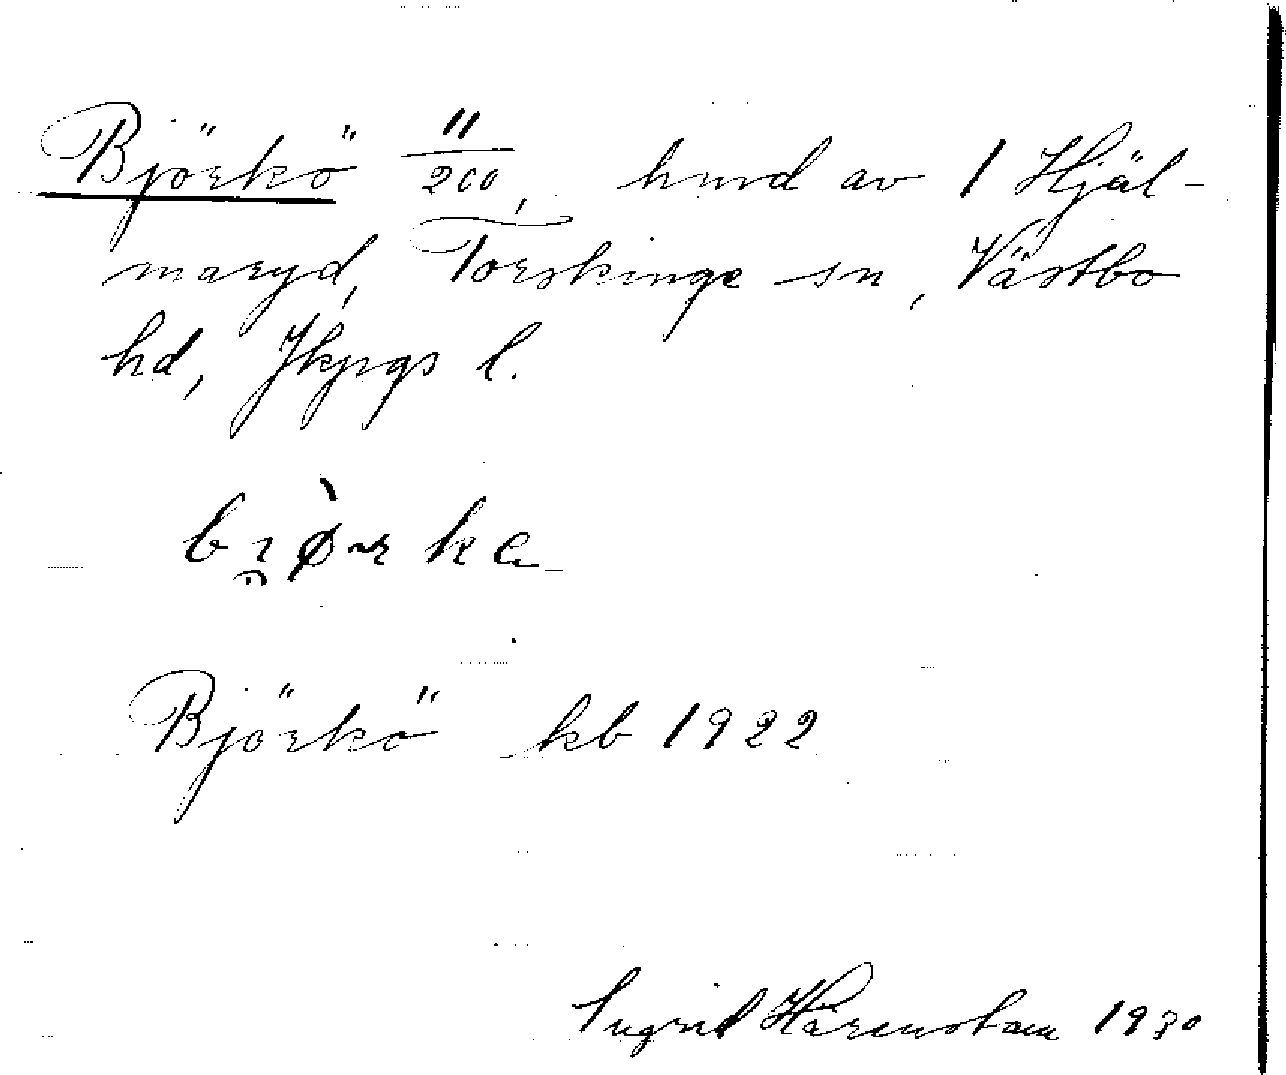 Björkö 11/200, hmd av 1 Hjäl-
maryd, Torskinge sn, Västbo
hd, Jkpgs l.
Björkö kb 1922
Ingrid Härenstam 1930